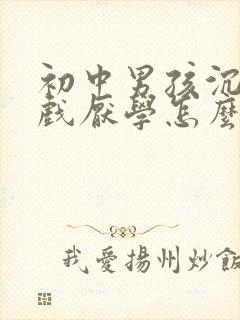 初中男孩沉
戲厭學怎麼
我愛揚州炒飯